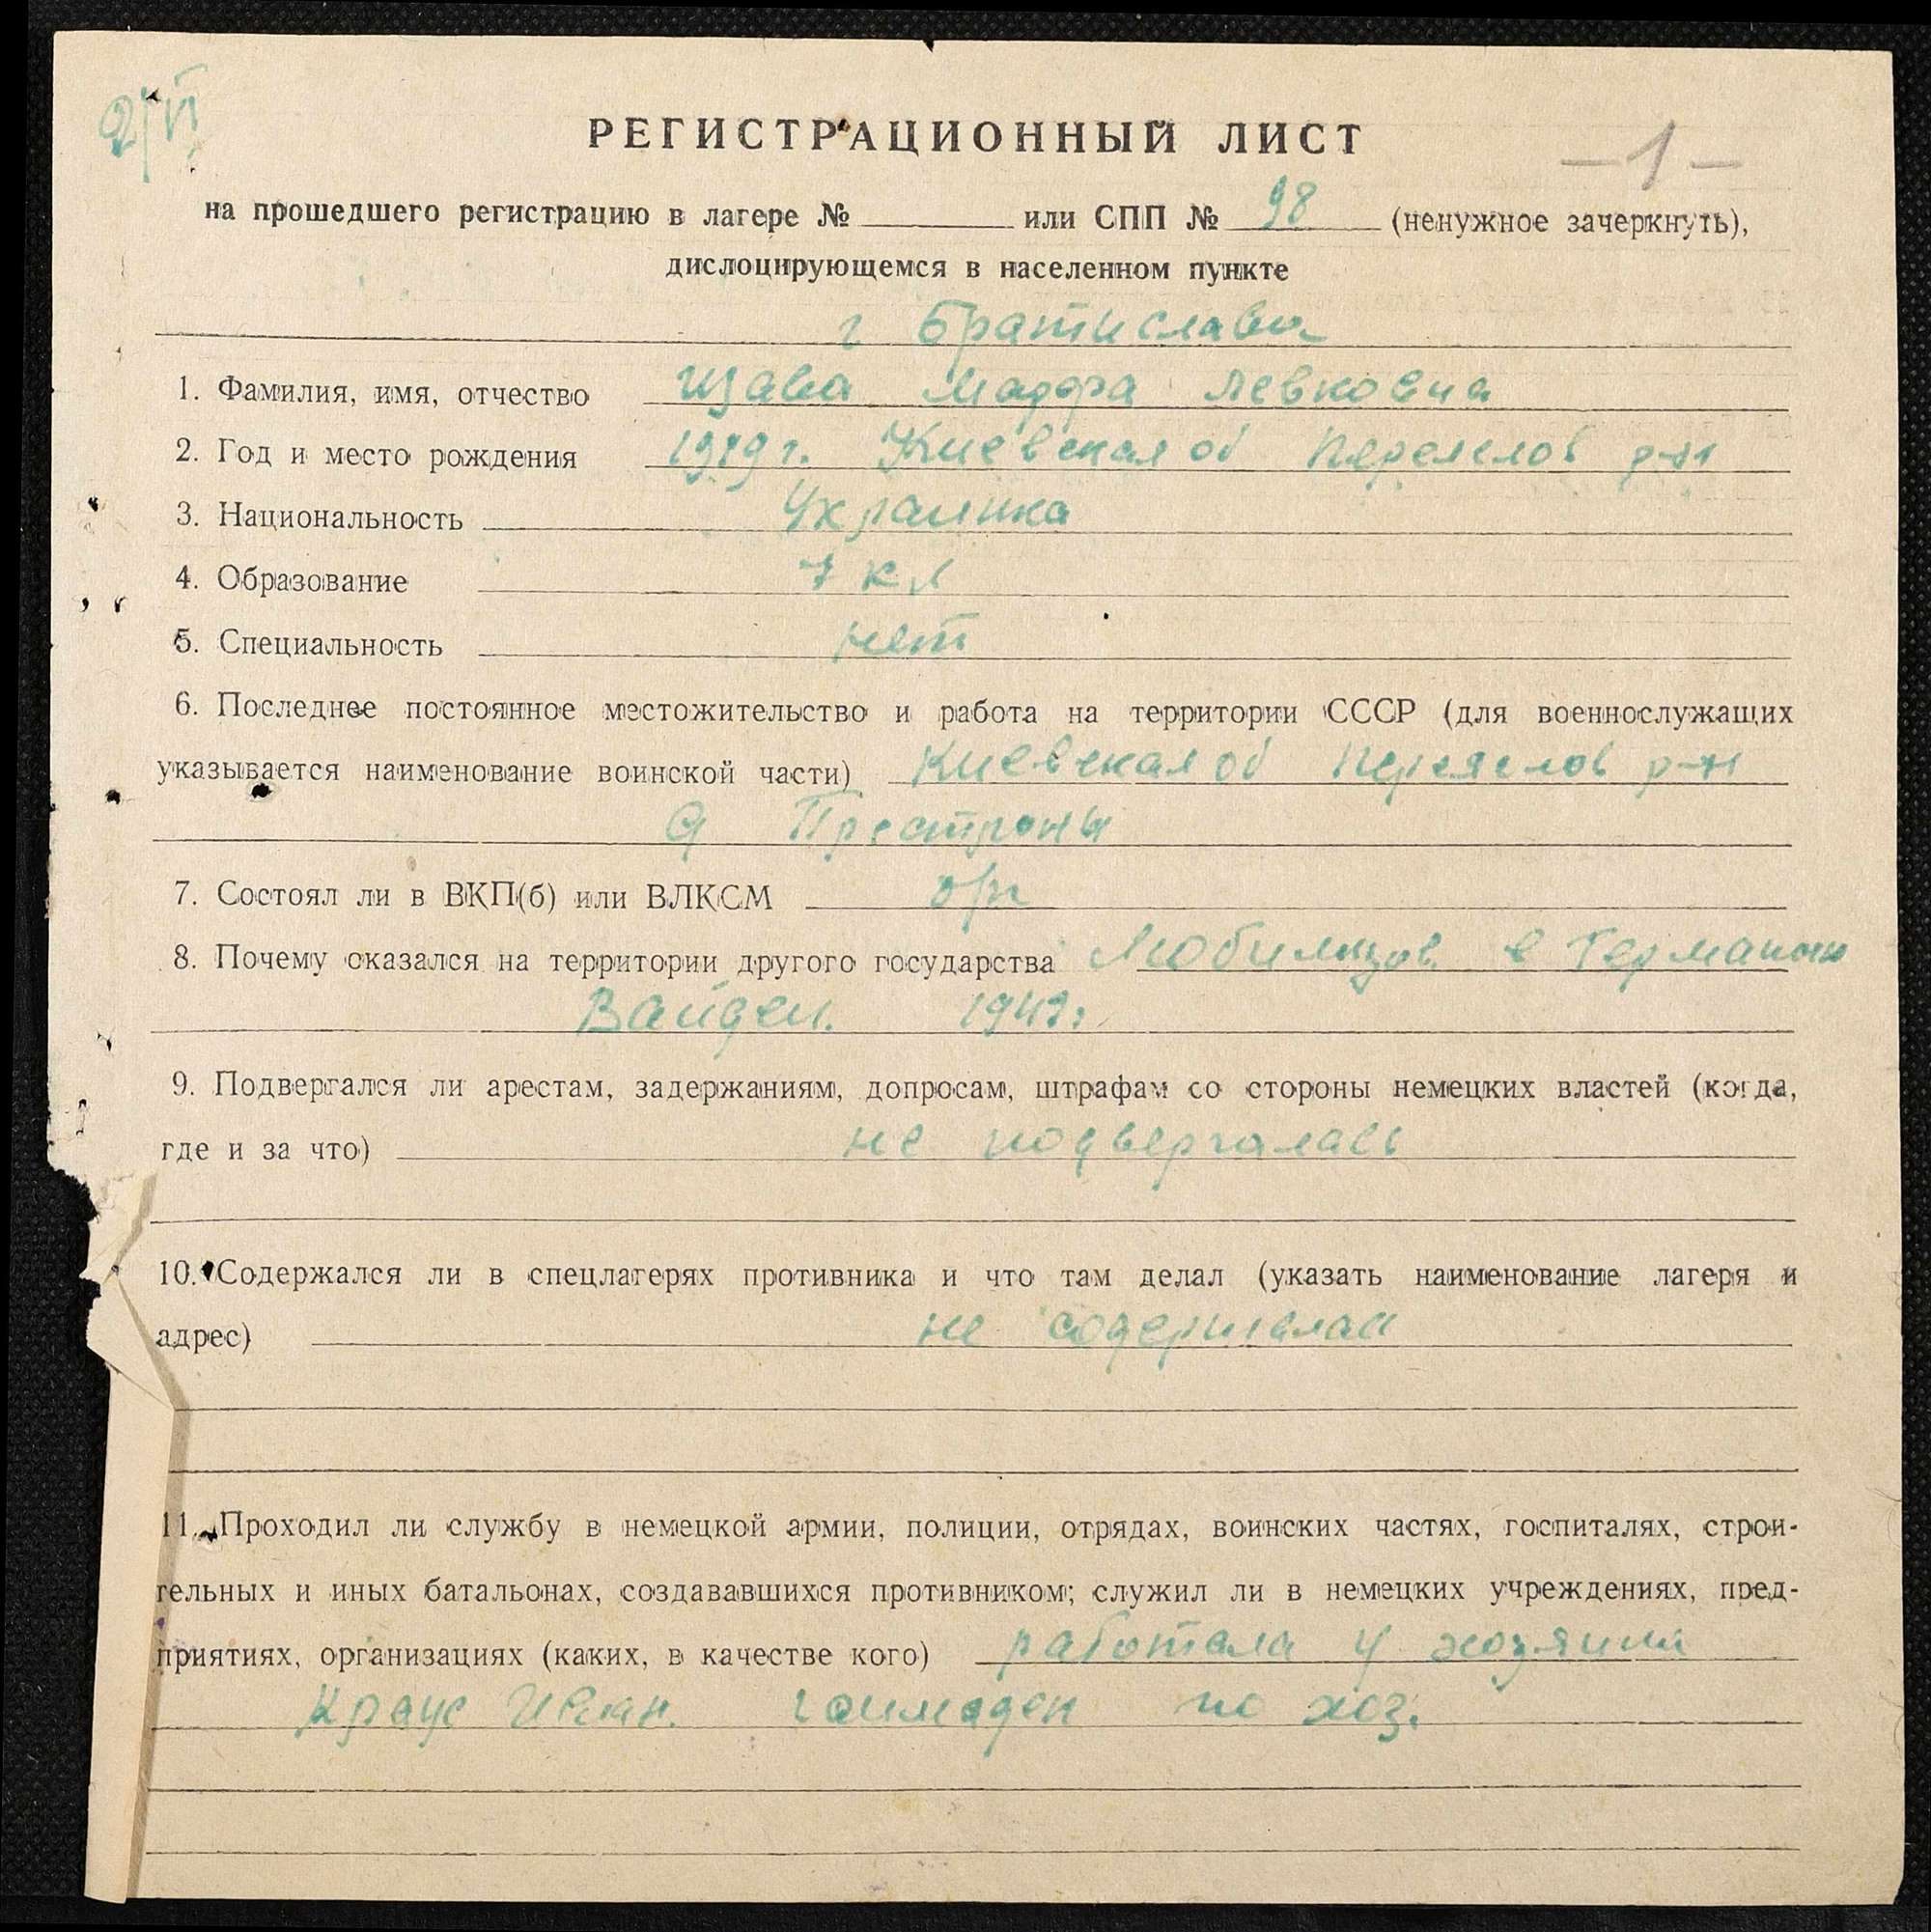 2/VI
РЕГИСТРАЦИОННЫЙ ЛИСТ
–1–
на прошедшего регистрацию в лагере № или СПП № 98 (ненужное зачеркнуть),
дислоцирующемся в населенном пункте
г Братислава
1. Фамилия, имя, отчество Левковна
2. Год и место рождения 1919 г. Киевская об р-н
3. Национальность Украинка
4. Образование 7 кл
5. Специальность нет
6. Последнее постоянное местожительство и работа на территории СССР (для военнослужащих
указывается наименование воинской части) Киевская об р-н
7. Состоял ли в ВКП(б) или ВЛКСМ
8. Почему оказался на территории другого государства в
Вайден.
9. Подвергался ли арестам, задержаниям, допросам, штрафам со стороны немецких властей (когда,
где и за что) не подвергалась
10. Содержался ли в спецлагерях противника и что там делал (указать наименование лагеря и
адрес) не
11. Проходил ли службу в немецкой армии, полиции, отрядах, воинских частях, госпиталях, строи-
тельных и иных батальонах, создававшихся противником; служил ли в немецких учреждениях, пред-
приятиях, организациях (каких, в качестве кого) работала у хозяина
Краус по хоз.